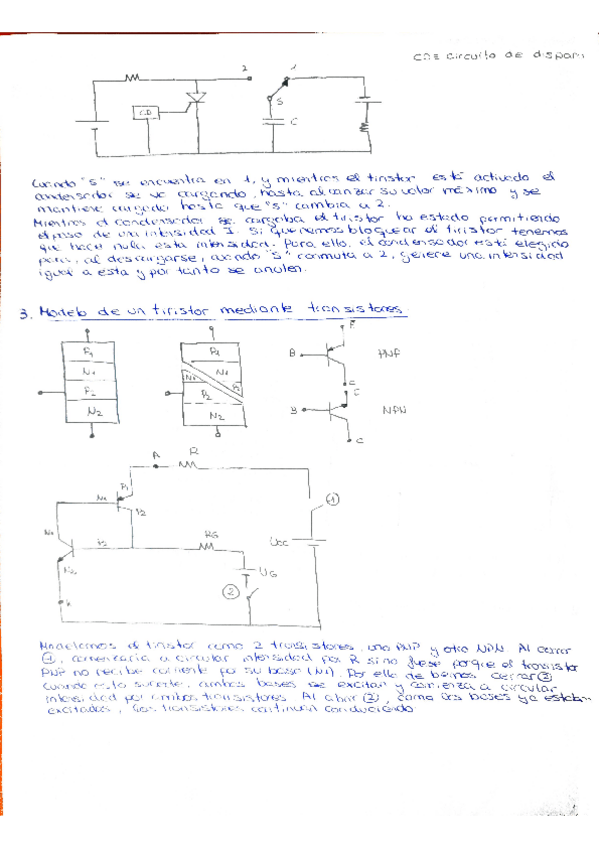 CD≡ Circuito de dispar
2 1
S
C.D
C
Cuando "S" se encuentra en 1, y mientras el tiristor está activado el
condensador se va cargando, hasta alcanzar su valor máximo y se
mantiene cargado hasta que "S" cambia a 2.
Mientras el condensador se cargaba el tiristor ha estado permitiendo
el paso de una intensidad I. Si queremos bloquear el tiristor tenemos
que hacer nula esta intensidad. Para ello, el condensador está elegido
para, al descargarse, cuando "S" conmuta a 2, genere una intensidad
igual a esta y por tanto se anulen.
3. Modelo de un tiristor mediante transistores.
P1
N1
P2
N2
P1
N1
N1
P2
P2
N2
E
B PNP
C
C
B NPN
C
A R
P1
N1
P2
1
N1
P2
RG
UCC
N2
UG
2
K
Modelamos el tiristor como 2 transistores, uno PNP y otro NPN. Al cerrar
1, comenzaría a circular intensidad por R si no fuese porque el transistor
PNP no recibe corriente por su base (N1). Por ello debemos cerrar 2
Cuando esto sucede, ambas bases se excitan y comienza a circular
intensidad por ambos transistores. Al abrir 2, como las bases ya estaban
excitadas, los transistores continuan conduciendo.